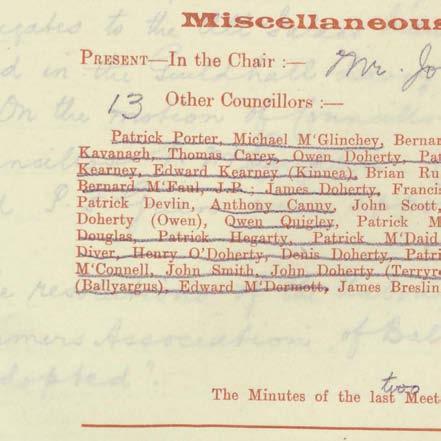 Miscellaneous
PRESENT—In the Chair :— Mr. Jo
13 Other Councillors :—
Patrick Porter, Michael M'Glinchey, Bernar
Kavanagh, Thomas Carey, Owen Doherty, Pat
Kearney, Edward Kearney (Kinnea), Brian Ru
Bernard M'Faul, J.P.; James Doherty, Franci
Patrick Devlin, Anthony Canny, John Scott,
Doherty (Owen), Owen Quigley, Patrick M
Douglas, Patrick Hegarty, Patrick M'Daid
Diver, Henry O'Doherty, Denis Doherty, Patri
M'Connell, John Smith, John Doherty (Terryr
(Ballyargus), Edward M'Dermott, James Breslin
two
The Minutes of the last Meet